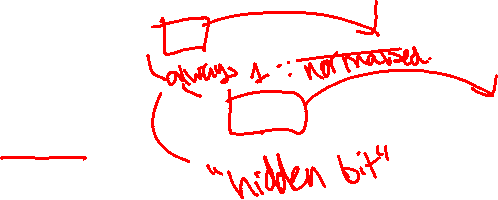 always 1 ∵ normalised.
"hidden bit"